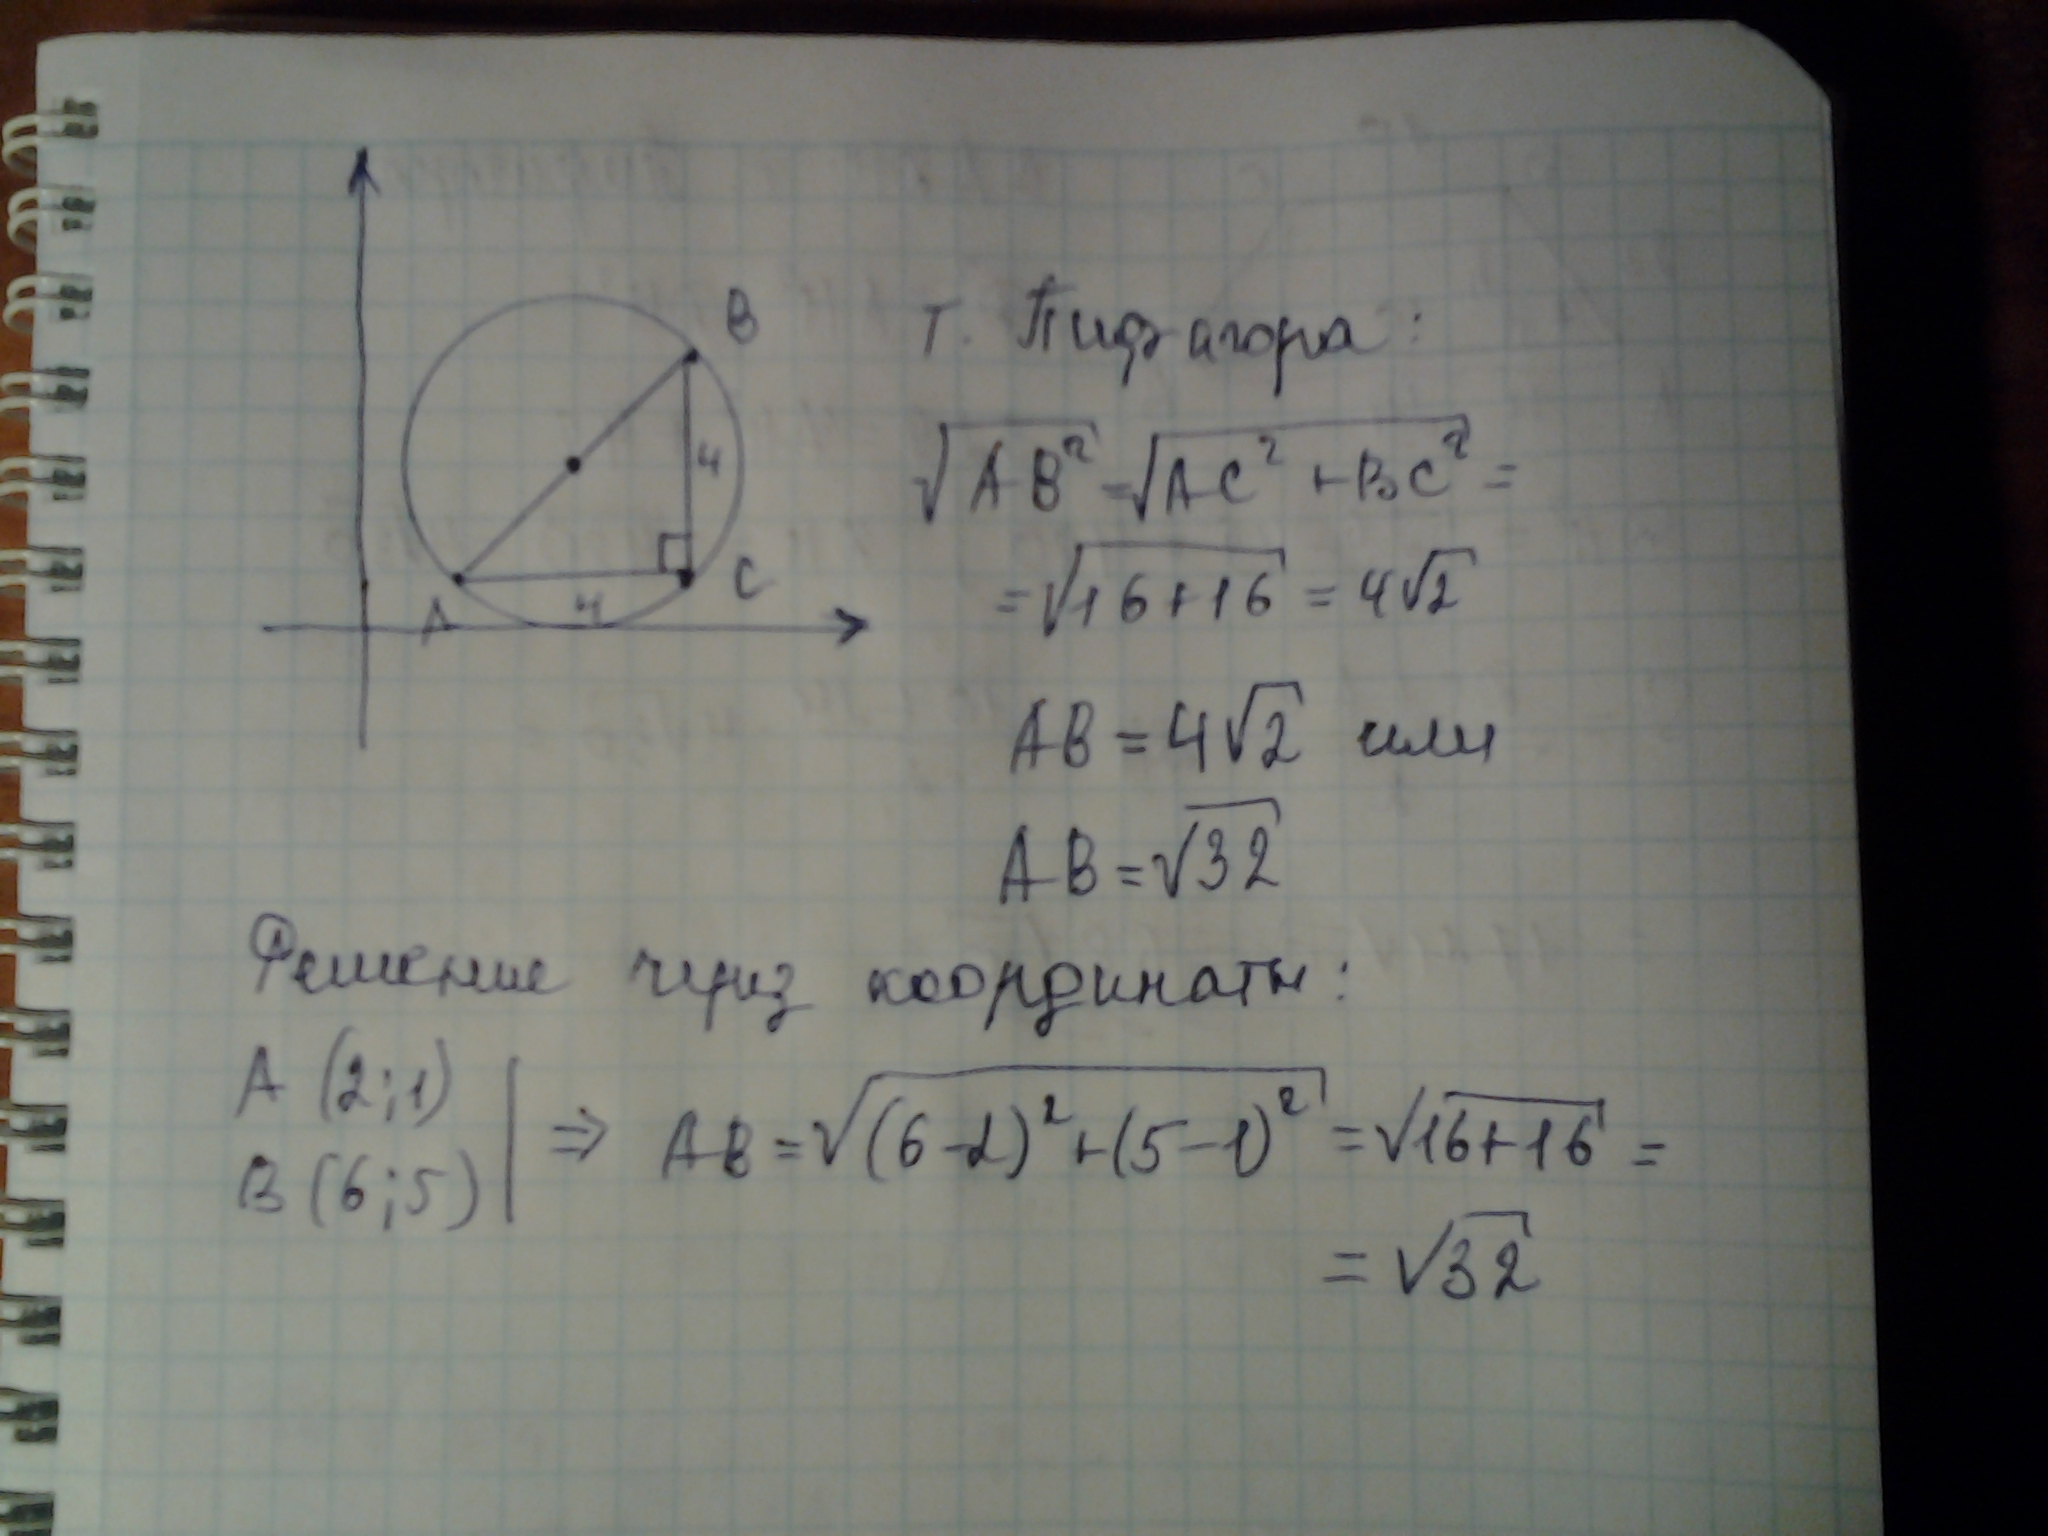 B
4
C
A
4
т. Пифагора:
√AB² = √AC² + BC² =
= √16+16 = 4√2
AB = 4√2 или
AB = √32
Решение через координаты:
A (2;1)
B (6;5)
⇒ AB = √(6-2)²+(5-1)² = √16+16 =
= √32